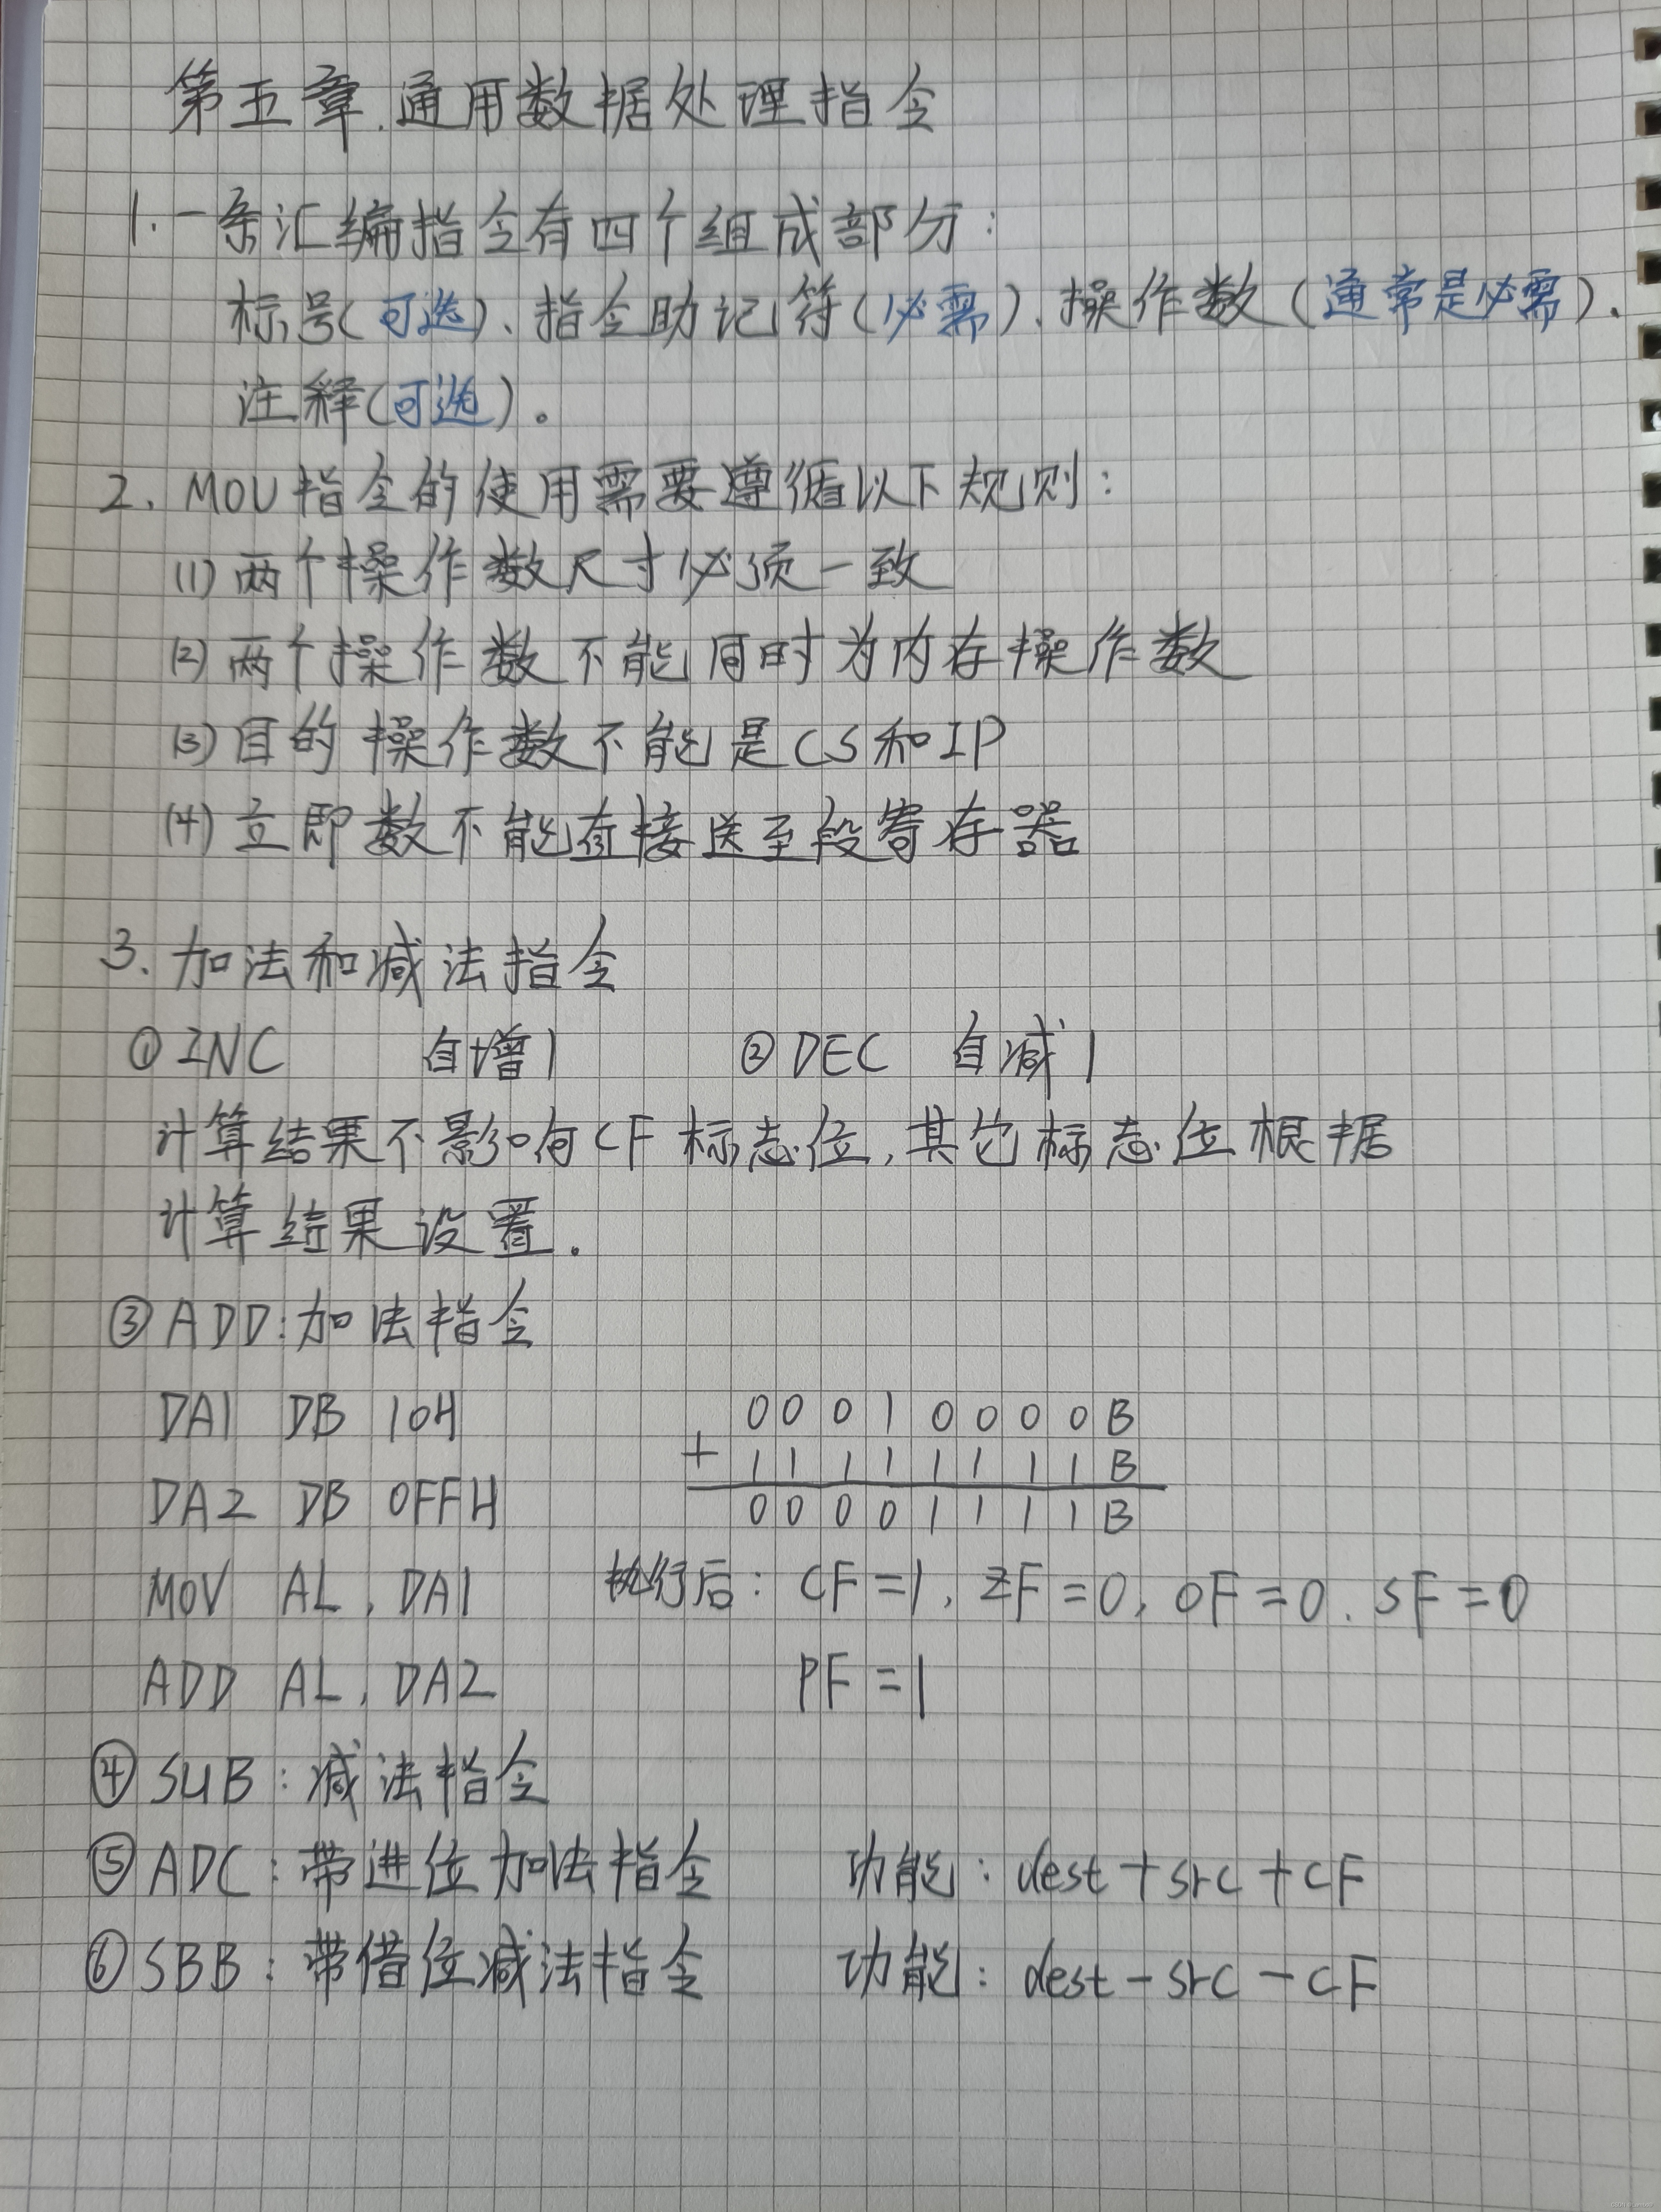 第五章.通用数据处理指令
1.一条汇编指令有四个组成部分:
标号(可选)、指令助记符(必需)、操作数(通常是必需).
注释(可选)。
2. MOV指令的使用需要遵循以下规则:
(1) 两个操作数尺寸必须一致
(2) 两个操作数不能同时为内存操作数
(3) 目的操作数不能是CS和IP
(4) 立即数不能直接送至段寄存器
3. 加法和减法指令
① INC 自增1 ② DEC 自减1
计算结果不影响CF标志位,其它标志位根据
计算结果设置.
③ ADD:加法指令
DA1 DB 10H 0 0 0 1 0 0 0 0 B
+ 1 1 1 1 1 1 1 1 B
DA2 DB 0FFH 0 0 0 0 1 1 1 1 B
MOV AL, DA1 执行后: CF=1, ZF=0, OF=0. SF=0
ADD AL, DA2 PF=1
④ SUB:减法指令
⑤ ADC:带进位加法指令 功能: dest+src+CF
⑥ SBB:带借位减法指令 功能: dest-src-CF